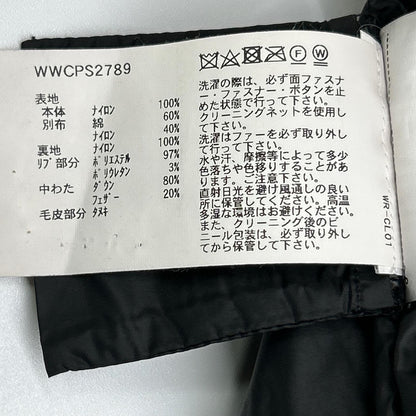 WWCPS2789
表地
本体 ナイロン 100%
別布 ナイロン 60%
綿 40%
裏地 ナイロン 100%
リブ部分 ポリエステル 97%
ポリウレタン 3%
中わた ダウン 80%
フェザー 20%
毛皮部分 タヌキ
P W
洗濯の際は、必ず面ファスナ
ー・ファスナー・ボタンを止
めた状態で行って下さい。
クリーニングネットを使用し
て下さい。
洗濯はファーを必ず取り外し
て行って下さい。
水や汗、摩擦等によって多少
色落ちや色移りすることがあ
ります。ご注意下さい。
直射日光を避け風通しの良い
所に保管して下さい。高温
多湿な環境はお避け下さい。
また、クリーニング後のビ
ニール包装は、必ず取り外し
てから保管して下さい。
WR-CL01